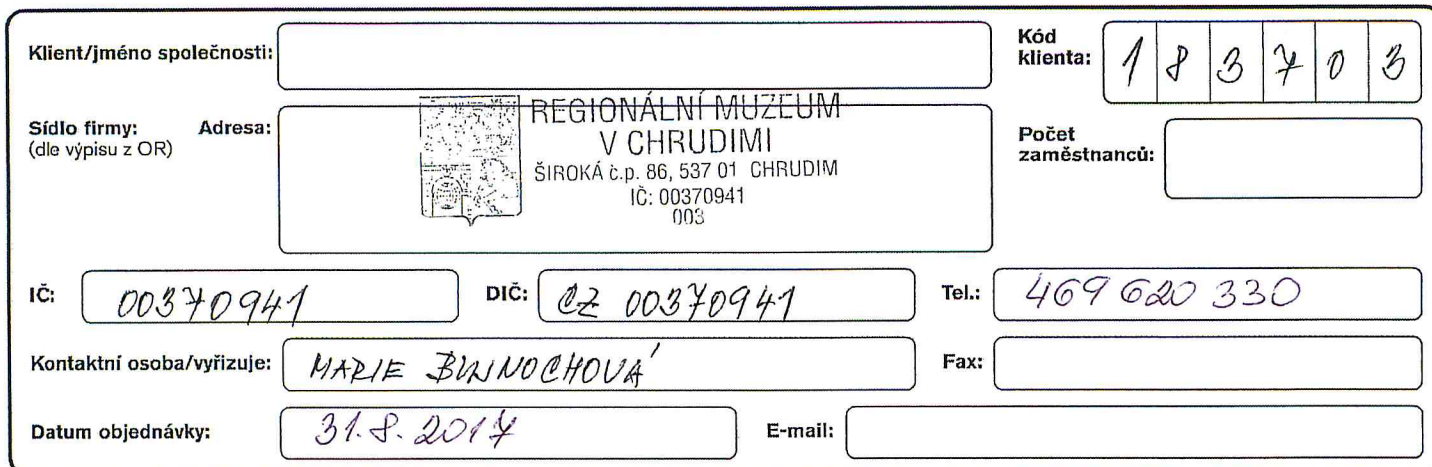 Klient/jméno společnosti:
Kód klienta: 183703
Sídlo firmy: Adresa:
(dle výpisu z OR)
REGIONÁLNÍ MUZEUM
V CHRUDIMI
ŠIROKÁ č.p. 86, 537 01 CHRUDIM
IČ: 00370941
003
Počet zaměstnanců:
IČ: 00370941 DIČ: CZ 00370941 Tel.: 469 620 330
Kontaktní osoba/vyřizuje: MARIE Fax:
Datum objednávky: 31.8.2017 E-mail: